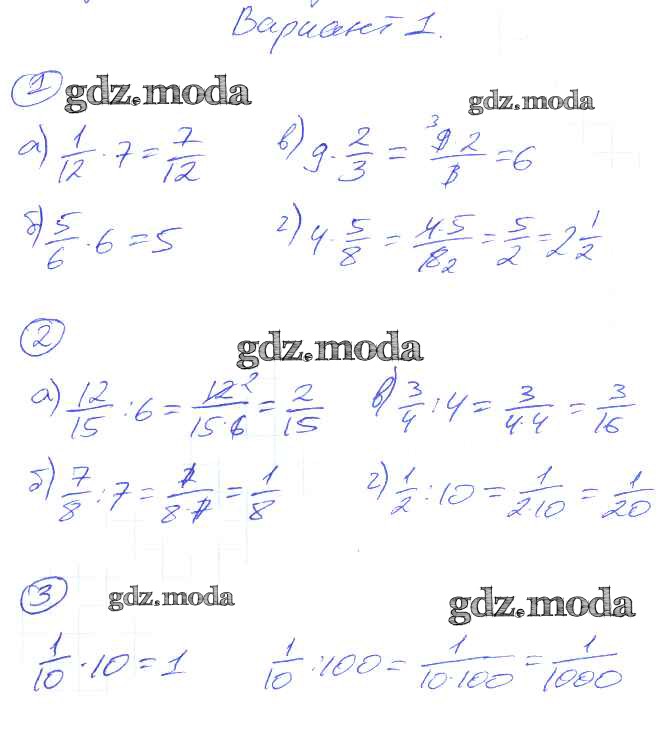 Вариант 1.
① gdz.moda gdz.moda
а) 1/12 · 7 = 7/12 в) 9 · 2/3 = ³9̸ 2/3̸ = 6
б) 5/6 · 6 = 5 г) 4 · 5/8 = 4̸·5/8̸₂ = 5/2 = 2 1/2
② gdz.moda
а) 12/15 : 6 = 1̸2̸²/15·6̸ = 2/15 в) 3/4 : 4 = 3/4·4 = 3/16
б) 7/8 : 7 = 7̸/8·7̸ = 1/8 г) 1/2 : 10 = 1/2·10 = 1/20
③ gdz.moda gdz.moda
1/10 · 10 = 1 1/10 : 100 = 1/10·100 = 1/1000